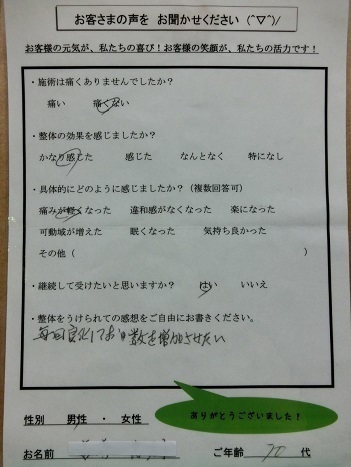 お客さまの声を お聞かせください (^▽^)/
お客様の元気が、私たちの喜び!お客様の笑顔が、私たちの活力です!
・施術は痛くありませんでしたか?
痛い 痛くない
・整体の効果を感じましたか?
かなり感じた 感じた なんとなく 特になし
・具体的にどのように感じましたか?(複数回答可)
痛みが軽くなった 違和感がなくなった 楽になった
可動域が増えた 眠くなった 気持ち良かった
その他( )
・継続して受けたいと思いますか? はい いいえ
・整体をうけられての感想をご自由にお書きください。
毎回 数を増加させたい
ありがとうございました!
性別 男性 ・ 女性
お名前 ご年齢 70 代